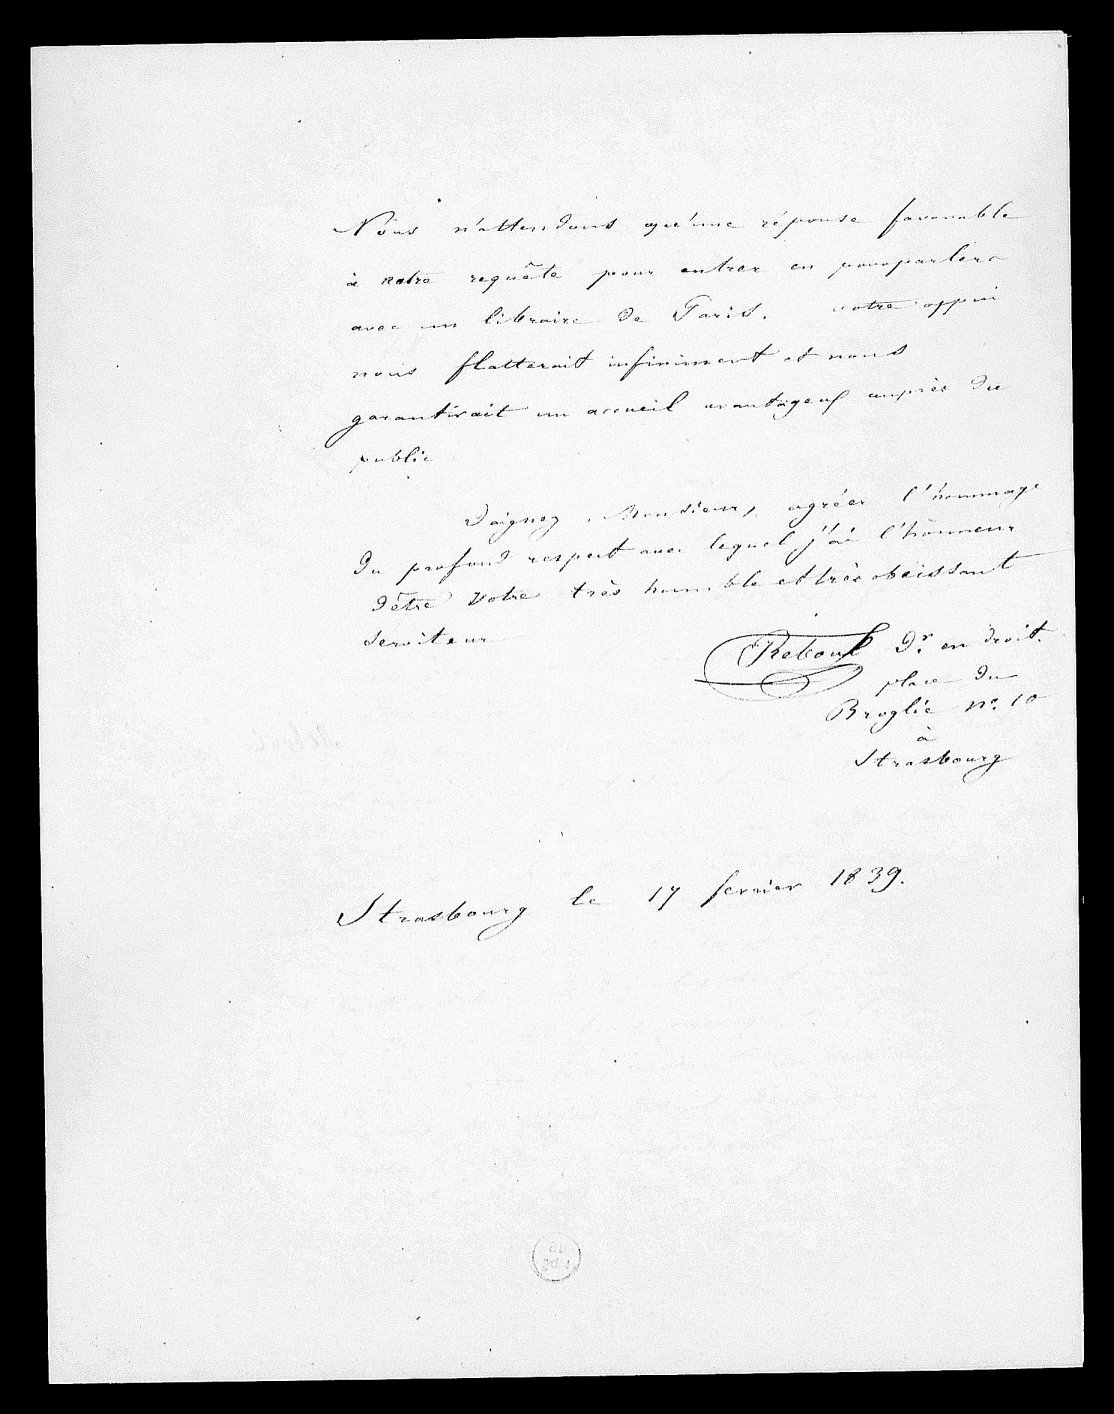 Nous n'attendons qu'une réponse favorable
à notre requête pour entrer en pourparlers
avec un libraire de Paris. votre appui
nous flatterait infiniment et nous
garantirait un accueil avantageux auprès du
public
Daignez, Monsieur, agréer l'hommage
du profond respect avec lequel j'ai l'honneur
d'être votre très humble et très obéissant
serviteur
Reboul Dr. en droit.
place du
Broglie No. 10
à
Strasbourg
Strasbourg le 17 fevrier 1839.